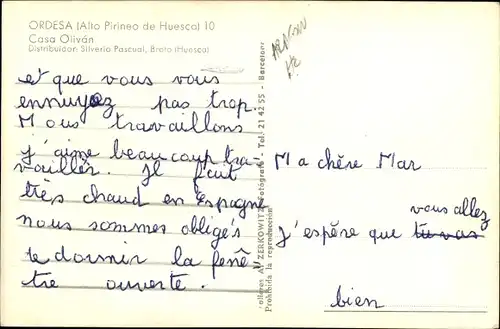 ORDESA (Alto Pirineo de Huesca) 10
Casa Oliván
Distribuidor: Silverio Pascual, Broto (Huesca)
ARAGON
Ma chère Mar
vous allez
J'espère que tu vas
bien
et que vous vous
ennuyez pas trop.
Nous travaillons
j'aime beaucoup tra-
vailler. Il fait
très chaud en Espagne
nous sommes obligés
de dormir la fenê-
tre ouverte.
Talleres A. ZERKOWITZ Fotógrafo - Tel. 21 42 55 - Barcelona
Prohibida la reproducción